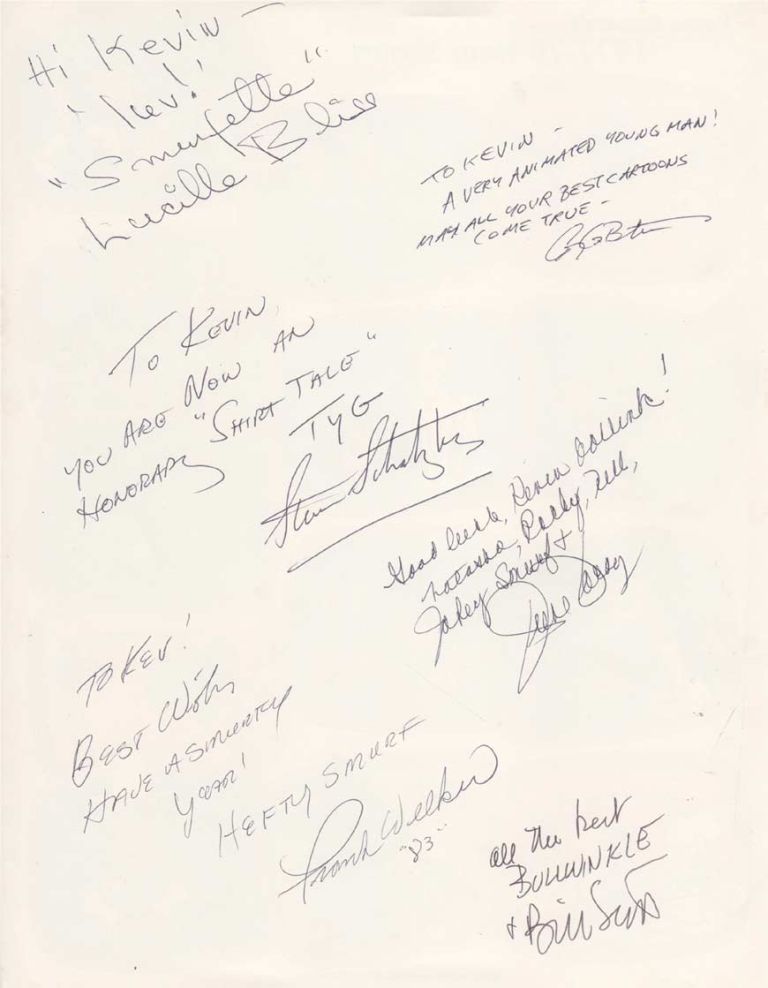 Hi Kevin -
"Kev!"
"Smurfette"
Lucille Bliss
TO KEVIN -
A VERY ANIMATED YOUNG MAN!
MAY ALL YOUR BEST CARTOONS
COME TRUE -
To KEVIN,
YOU ARE NOW AN
HONORARY "SHIRT TALE"
TYG
Steve Schatzberg
Good luck, Kevin dollink!
Natasha, Rocky, Nell,
Jokey Smurf &
June Foray
TO KEV!
BEST Wishes
HAVE A SMURFY
YEAR!
HEFTY SMURF
Frank Welker
"83"
all the best
BULLWINKLE
+ Bill Scott